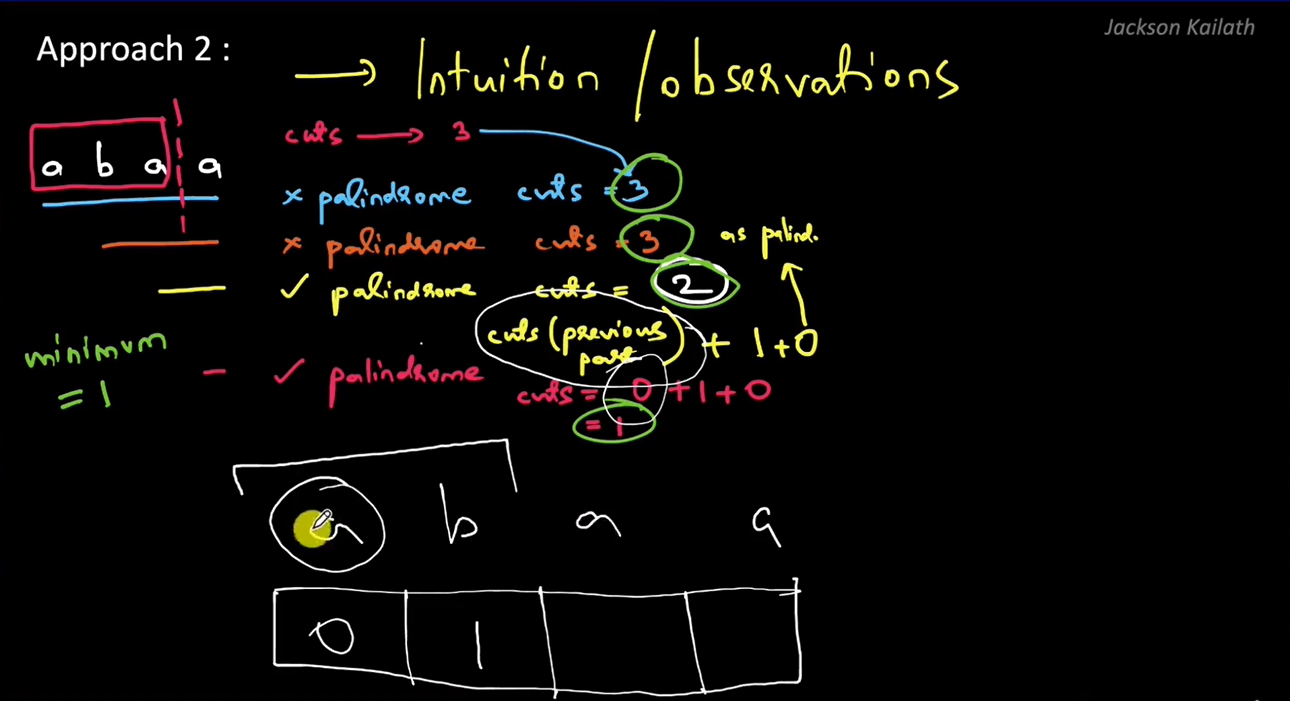 Jackson Kailath
Approach 2 :
→ Intuition / observations
cuts → 3
a b a a
× palindrome cuts = 3
× palindrome cuts = 3 as palind.
✓ palindrome cuts = 2
cuts (previous part) + 1 + 0
minimum = 1
– ✓ palindrome cuts = 0 + 1 + 0
= 1
a b a a
0 1